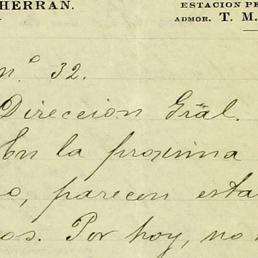 HERRAN.
ESTACION PE
ADMOR. T. M.
n.º 32.
Dirección Grãl.
En la proxima
o, parecen esta
os. Por hoy, no